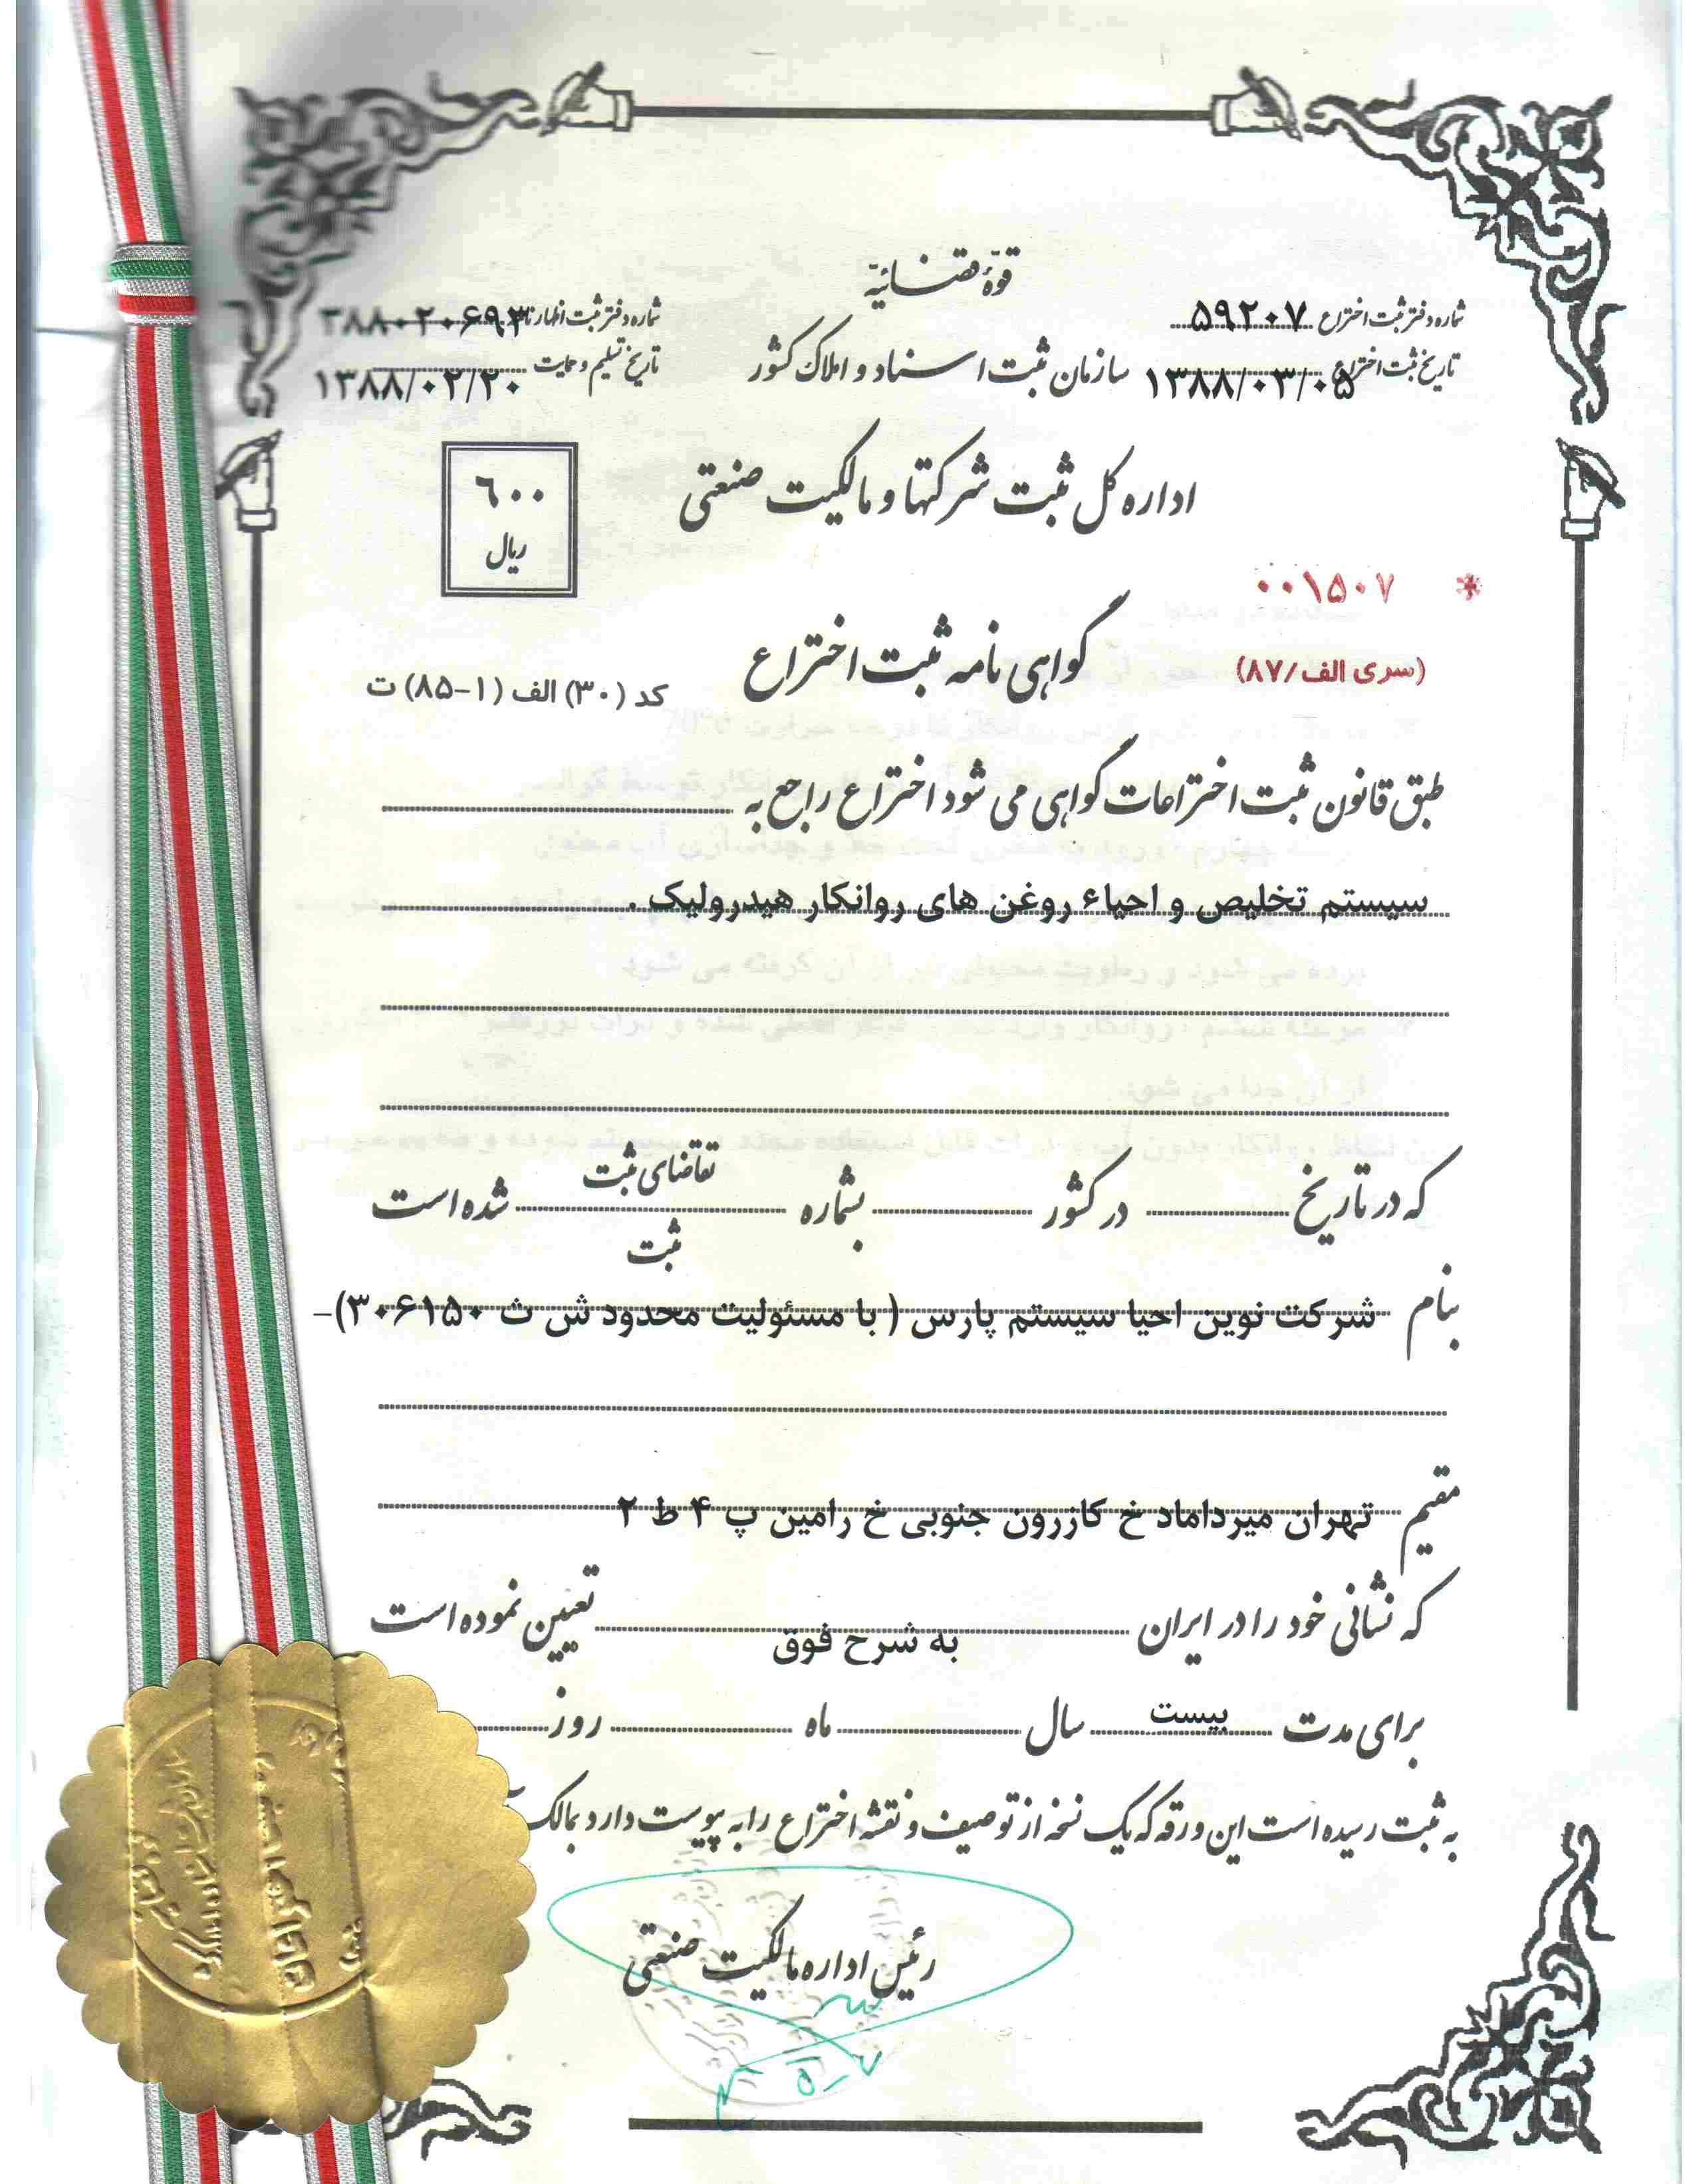 قوّهٔ قضائیّه
شماره دفتر ثبت اختراع ۵۹۲۰۷
شماره دفتر ثبت اظهارنامه ۳۸۸۰۲۰۶۹۳
سازمان ثبت اسناد و املاک کشور
تاریخ ثبت اختراع ۱۳۸۸/۰۳/۰۵
تاریخ تسلیم و حمایت ۱۳۸۸/۰۲/۲۰
اداره کل ثبت شرکتها و مالکیت صنعتی
۶۰۰
ریال
* ۰۰۱۵۰۷
(سری الف/۸۷)
گواهی نامه ثبت اختراع
کد (۳۰) الف (۱-۸۵) ت
طبق قانون ثبت اختراعات گواهی می شود اختراع راجع به
سیستم تخلیص و احیاء روغن های روانکار هیدرولیک .
که در تاریخ در کشور بشماره تقاضای ثبت شده است
ثبت
بنام شرکت نوین احیا سیستم پارس ( با مسئولیت محدود ش ث ۳۰۶۱۵۰)-
مقیم تهران میرداماد خ کازرون جنوبی خ رامین پ ۴ ط ۲
که نشانی خود را در ایران به شرح فوق تعیین نموده است
برای مدت بیست سال ماه روز
به ثبت رسیده است این ورقه که یک نسخه از توصیف و نقشه اختراع را به پیوست دارد بمالک
رئیس اداره مالکیت صنعتی